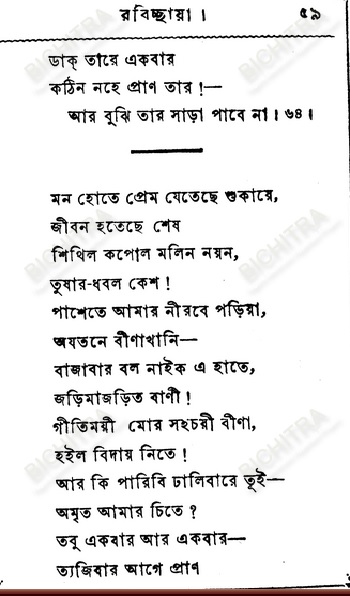 রবিচ্ছায়া। ৫৯
ডাক্ তারে একবার
কঠিন নহে প্রাণ তার!—
আর বুঝি তার সাড়া পাবে না। ৬৪।
মন হোতে প্রেম যেতেছে শুকায়ে,
জীবন হতেছে শেষ
শিথিল কপোল মলিন নয়ন,
তুষার-ধবল কেশ!
পাশেতে আমার নীরবে পড়িয়া,
অযতনে বীণাখানি—
বাজাবার বল নাইক এ হাতে,
জড়িমাজড়িত বাণী!
গীতিময়ী মোর সহচরী বীণা,
হইল বিদায় নিতে!
আর কি পারিবি ঢালিবারে তুই—
অমৃত আমার চিতে?
তবু একবার আর একবার—
ত্যজিবার আগে প্রাণ
BICHITRA
BICHITRA
BICHITRA
BICHITRA
BICHITRA
BICHITRA